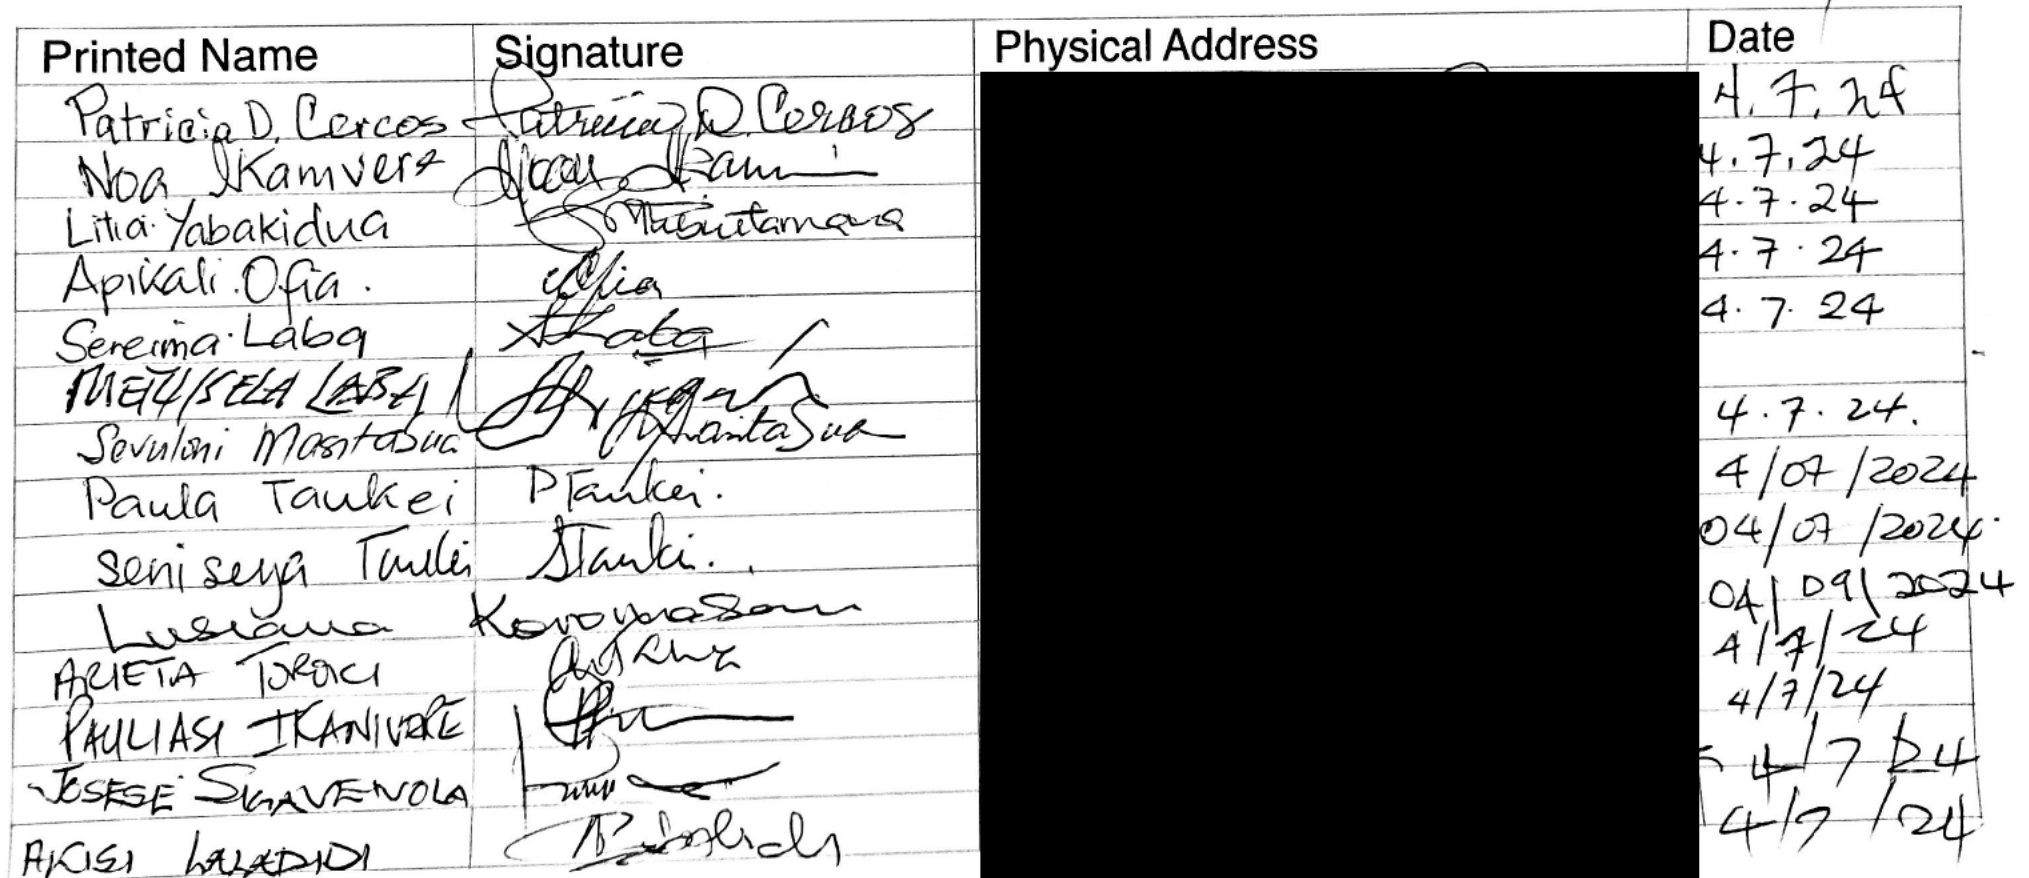 Printed Name Signature Physical Address Date
Patricia D. Cercos Patricia D. Cercos 4.7.24
Noa Ikamvere 4.7.24
Litia Yabakidua 4.7.24
Apikali Ofia. Ofia 4.7.24
Sereima Laba SLaba 4.7.24
METUISELA LABA
Sevuloni Masitabua 4.7.24.
Paula Taukei PTaukei. 4/07/2024
Seniseya Taukei STauki.. 04/07/2024.
Lusiana 04/09/2024
ARIETA TOROCI 4/7/24
PAULIASI IKANIVERE 4/7/24
JOSESE 4/7/24
AKISI LALADIDI 4/7/24